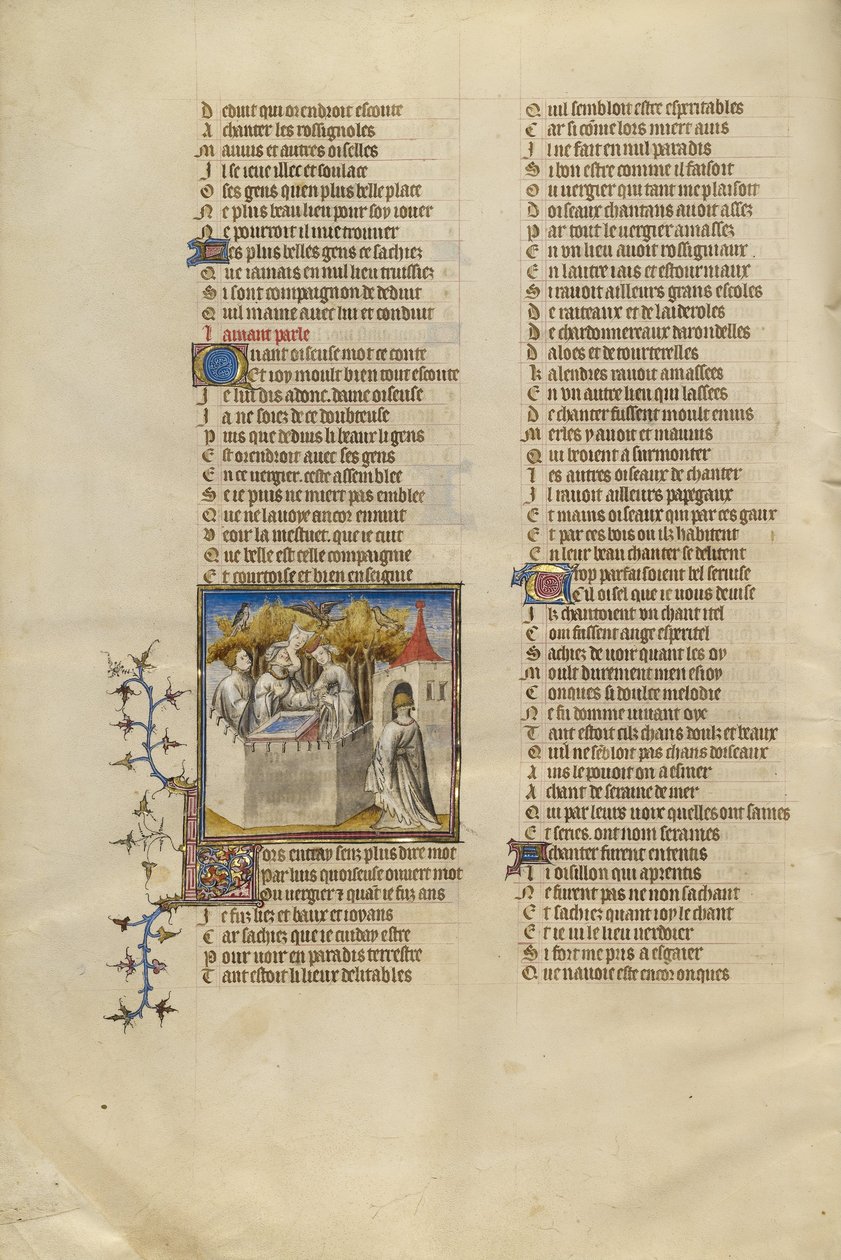 Deduit qui orendroit escoute
A chanter les rossignoles
Mauuis et autres oiselles
Il se ieue illec et soulace
O ses gens quen plus belle place
Ne plus beau lieu pour soy iouer
Ne pourroit il mie trouuer
Les plus belles gens ce sachiez
Que iamais en nul lieu truissiez
Si sont compaignon de deduit
Quil maine auec lui et conduit
Lamant parle
Quant oiseuse mot ce conte
Et ioy moult bien tout escoute
Ie lui dis adonc. dame oiseuse
Ia ne soiez de ce doubteuse
Puis que deduis li beaux li gens
Est orendroit auec ses gens
En ce vergier. ceste assemblee
Se ie puis ne miert pas emblee
Que ne lauoye encor ennuit
Veoir la mestuet. que ie cuit
Que belle est celle compaignie
Et courtoise et bien enseignie
Lors entray senz plus dire mot
Par luis quoiseuse ouuert mot
Ou vergier ⁊ quāt ie fuz ans
Ie fuz liez et baux et ioyans
Car sachiez que ie cuiday estre
Pour uoir en paradis terrestre
Tant estoit li lieux delitables
Quil sembloit estre esperitables
Car si cōme lors miert auis
Il ne fait en nul paradis
Si bon estre comme il faisoit
Ou vergier qui tant me plaisoit
Doiseaux chantans auoit assez
Par tout le vergier amassez
En vn lieu auoit rossigniaux.
En lautre iais et estourniaux
Si rauoit ailleurs grans escoles
De roiteaux et de laideroles
De chardonnereaux darondelles
Daloes et de tourterelles
Kalendres rauoit amassees
En vn autre lieu qui lassees
De chanter fussent moult enuis
Merles y auoit et mauuis
Qui beoient a surmonter
Les autres oiseaux de chanter
Il rauoit ailleurs papegaux
Et mains oiseaux qui par ces gaux
Et par ces bois ou ilz habitent
En leur beau chanter se delitent
Trop parfaisoient bel seruise
Cil oisel que ie vous deuise
Ilz chantoient vn chant itel
Com fussent ange esperitel
Sachiez de uoir quant les oy
Moult durement men esioy
Conques si doulce melodie
Ne fu domme viuant oye
Tant estoit cilz chans doulz et beaux
Quil ne sēbloit pas chans doiseaux
Ains le pouoit on aesmer
A chant de seraine de mer
Qui par leurs uoix quelles ont saines
Et series. ont nom seraines
A chanter furent ententis
Li oisillon qui aprentis
Ne furent pas ne non sachant
Et sachiez quant ioy le chant
Et ie ui le lieu uerdoier
Si fort me pris a esgaier
Que nauoie este encor onques